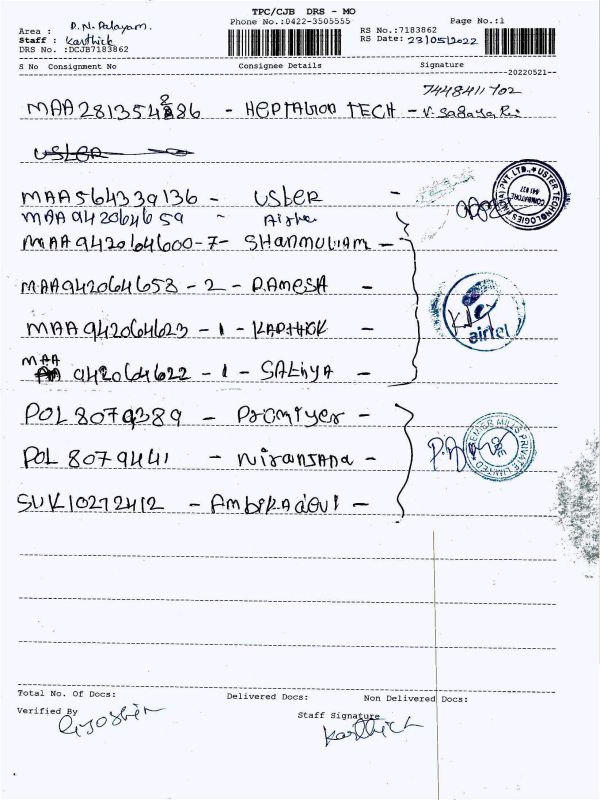 TPC/CJB DRS - MO
Phone No.:0422-3505555
Page No.:1
Area : P.N. Palayam.
Staff : Karthick
DRS No. :DCJB7183862
RS No.:7183862
RS Date: 23/05/2022
S No Consignment No Consignee Details Signature
--20220521--
7448411702
MAA281354886 - HEPTAGON TECH -
USTER
MAA564339136 - USTER -
MAA942064659 -
MAA942064600-7- SHANMUGAM -
MAA942064653 - 2 - RAMESA -
MAA942064623 - 1 - KARTHIK -
MAA 942064622 - 1 - SATHYA -
POL8079389 - Promiyer -
POL 8079441 - Niranjana -
SUK10272412 - Ambikadevi -
USTER TECHNOLOGIES (INDIA) PVT. LTD.,
COIMBATORE
641 037
airtel
PREMIER MILLS PRIVATE LIMITED
CBE
Total No. Of Docs: Delivered Docs: Non Delivered Docs:
Verified By
Staff Signature
Karthick